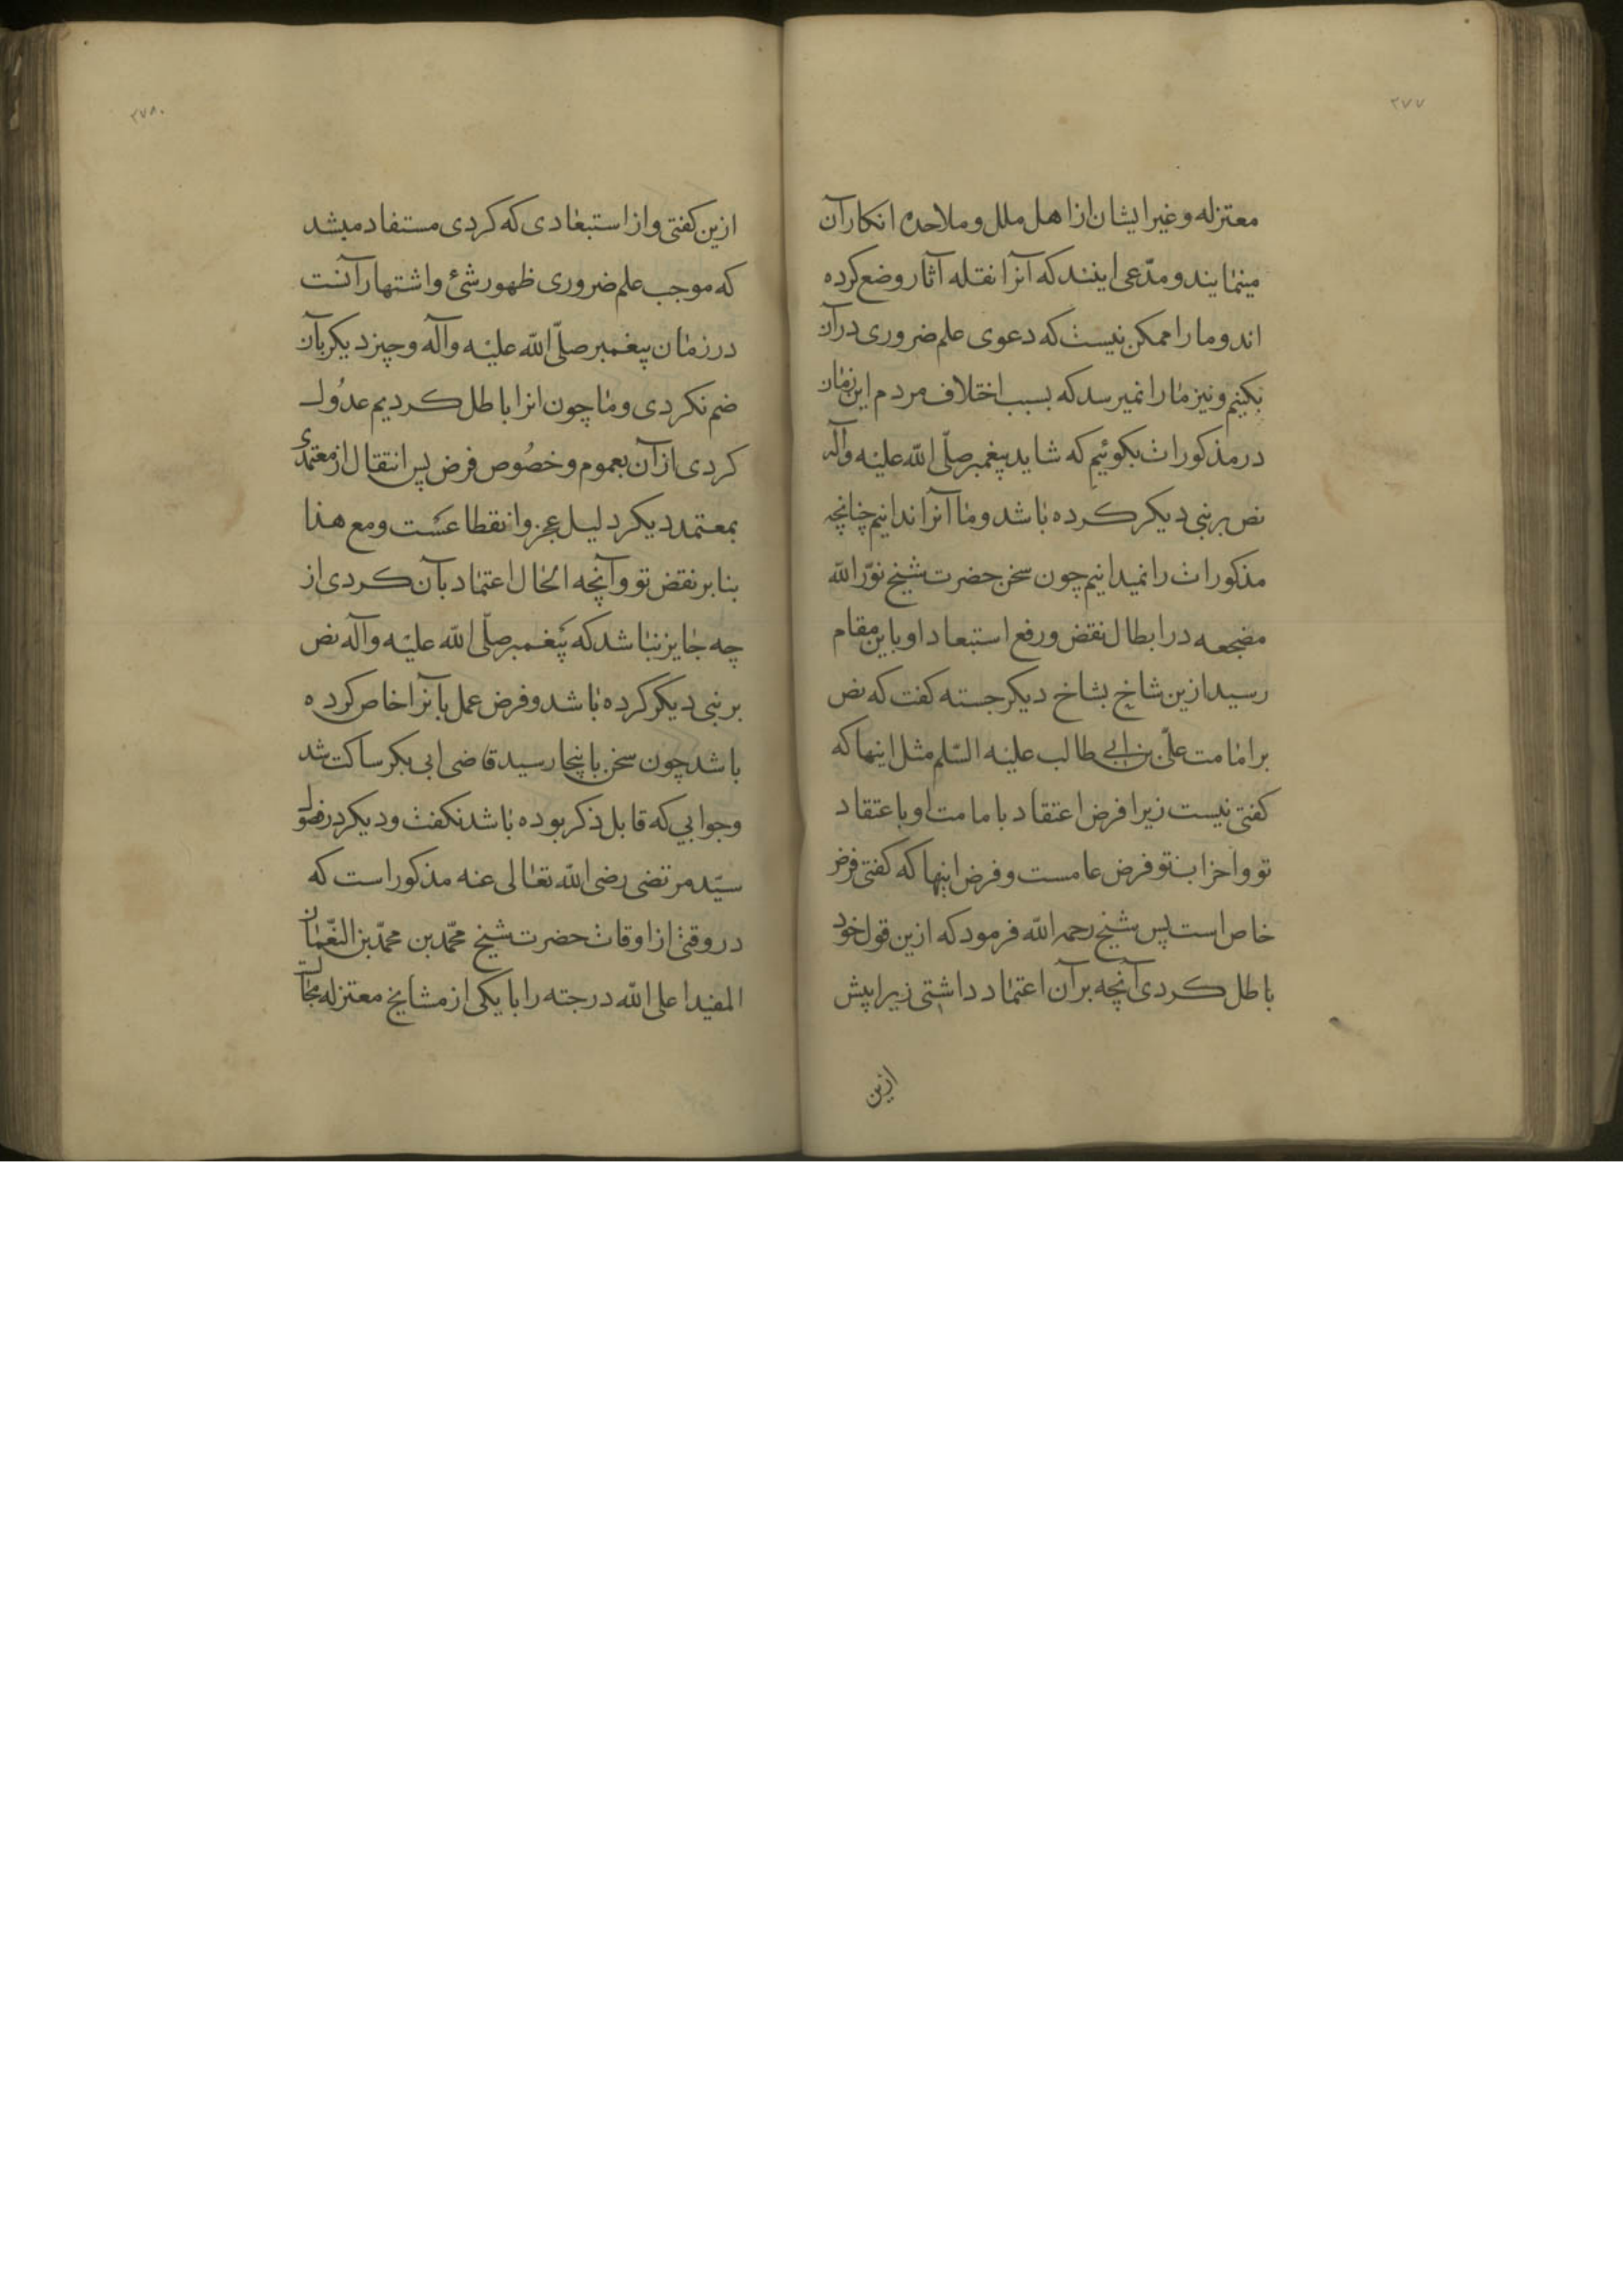 ٢٧٧
معتزله و غیر ایشان از اهل ملل و ملاحده انکار آن
مینمایند و مدّعی اینند که آنرا نقله آثار وضع کرده
اند و ما را ممکن نیست که دعوی علم ضروری در آن
بکنیم و نیز ما را نمیرسد که بسبب اختلاف مردم این زمان
در مذکورات بکوئیم که شاید پیغمبر صلّی الله علیه وآله
نص بر نبی دیکر کرده باشد و ما آنرا ندانیم چنانچه
مذکورات را نمیدانیم چون سخن حضرت شیخ نوّر الله
مضجعه در ابطال نقض و رفع استبعاد او باین مقام
رسید ازین شاخ بشاخ دیکر جسته کفت که نص
بر امامت علیّ بن ابی طالب علیه السّلم مثل اینها که
کفتی نیست زیرا فرض اعتقاد بامامت او باعتقاد
تو و احزاب تو فرض عامست و فرض اینها که کفتی فرض
خاص است پس شیخ رحمه الله فرمود که ازین قول خود
باطل کردی آنچه بر آن اعتماد داشتی زیرا پیش
ازین
٢٧٨
ازین کفتی و از استبعادی که کردی مستفاد میشد
که موجب علم ضروری ظهور شئ و اشتهار آنست
در زمان پیغمبر صلّی الله علیه وآله و چیز دیکر بآن
ضم نکردی و ما چون انرا باطل کردیم عدول
کردی از آن بعموم و خصوص فرض پس انتقال از معتمدی
بمعتمد دیکر دلیل عجز و انقطاعست و مع هذا
بنا بر نقض تو و آنچه الحال اعتماد بآن کردی از
چه جایز نباشد که پیغمبر صلّی الله علیه وآله نص
بر نبی دیکر کرده باشد و فرض عمل بآنرا خاص کرده
باشد چون سخن باینجا رسید قاضی ابی بکر ساکت شد
و جوابی که قابل ذکر بوده باشد نکفت و دیکر در فصول
سیّد مرتضی رضی الله تعالی عنه مذکور است که
در وقتی از اوقات حضرت شیخ محمّد بن محمّد بن النّعمان
المفید اعلی الله درجته را با یکی از مشایخ معتزله